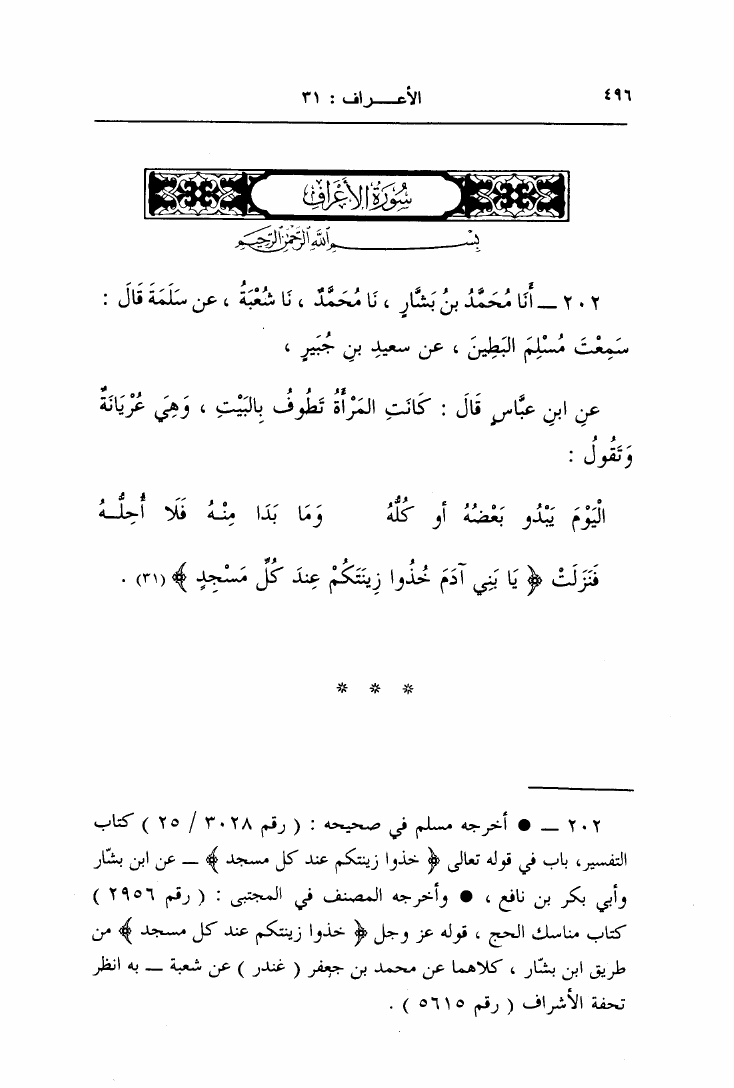 ٤٩٦
الأعـــراف : ٣١
سُورَةُ الأَعْرَافِ
بِسْــــــــمِ اللَّهِ الرَّحْمَٰنِ الرَّحِيمِ
٢٠٢ ــ أَنَا مُحَمَّدُ بنُ بَشَّارٍ ، نَا مُحَمَّدٌ ، نَا شُعْبَةُ ، عن سَلَمَةَ قَالَ :
سَمِعْتَ مُسْلِمَ البَطِينَ ، عن سعيدِ بنِ جُبَيرٍ ،
عنِ ابنِ عبَّاسٍ قَالَ : كَانَتِ المَرْأَةُ تَطُوفُ بِالبَيْتِ ، وَهِيَ عُرْيَانَةٌ
وَتَقُولُ :
الْيَوْمَ يَبْدُو بَعْضُهُ أو كلُّهُ وَمَا بَدَا مِنْـهُ فَلَا أُحِلُّــهُ
فَنَزَلَتْ ﴿ يَا بَنِي آدَمَ خُذُوا زِينَتَكُمْ عِندَ كُلِّ مَسْجِدٍ ﴾ (٣١) .
* * *
٢٠٢ ــ ● أخرجه مسلم في صحيحه : ( رقم ٣٠٢٨ / ٢٥ ) كتاب
التفسير، باب في قوله تعالى ﴿ خذوا زينتكم عند كل مسجد ﴾ ــ عن ابن بشّار
وأبي بكر بن نافع ، ● وأخرجه المصنف في المجتبى : ( رقم ٢٩٥٦ )
كتاب مناسك الحج ، قوله عز وجل ﴿ خذوا زينتكم عند كل مسجد ﴾ من
طريق ابن بشّار ، كلاهما عن محمد بن جعفر ( غندر ) عن شعبة ــ به انظر
تحفة الأشراف ( رقم ٥٦١٥ ) .